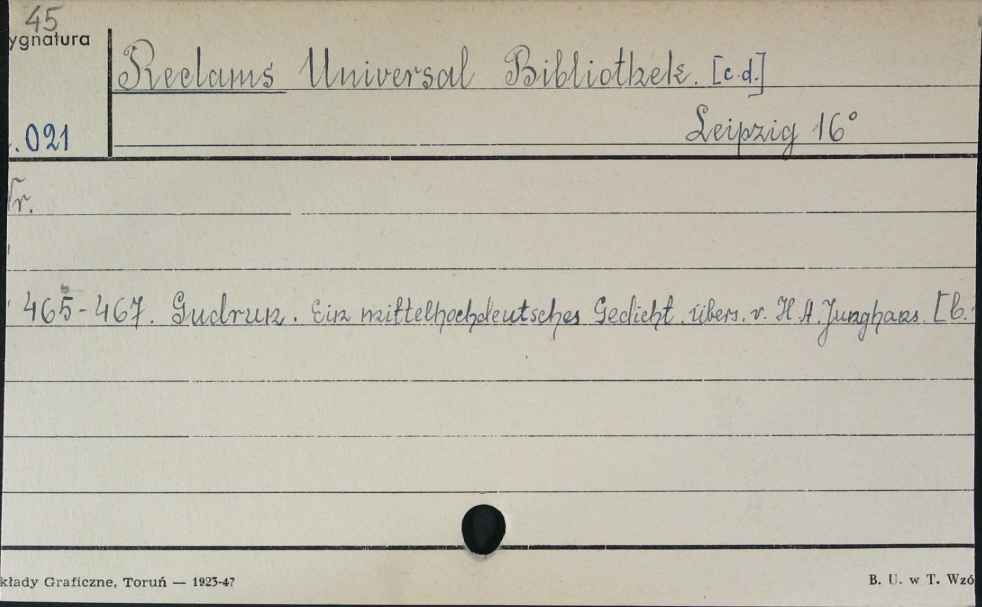 45
ygnatura
Reclams Universal Bibliothek. [c.d.]
.021
Leipzig 16°
Nr.
465-467. Gudrun. Ein mittelhochdeutsches Gedicht übers. v. H. A. Junghans. [b.
kłady Graficzne, Toruń — 1923-47
B. U. w T. Wzó